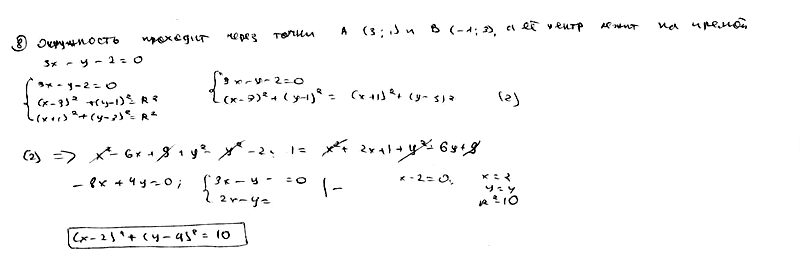 ⑧ Окружность проходит через точки A (3;1) и B (-1;3), а её центр лежит на прямой
3x - y - 2 = 0
{ 3x - y - 2 = 0
{ (x-3)² + (y-1)² = R²
{ (x+1)² + (y-3)² = R²
{ 3x - y - 2 = 0
{ (x-3)² + (y-1)² = (x+1)² + (y-3)² (2)
(2) => x² - 6x + 9 + y² - 2 1 = x² + 2x + 1 + y² - 6y + 9
- 8x + 4y = 0; { 3x - y = 0
{ 2x - y =
x - 2 = 0; x = 2
y = 4
R² = 10
(x-2)² + (y-4)² = 10